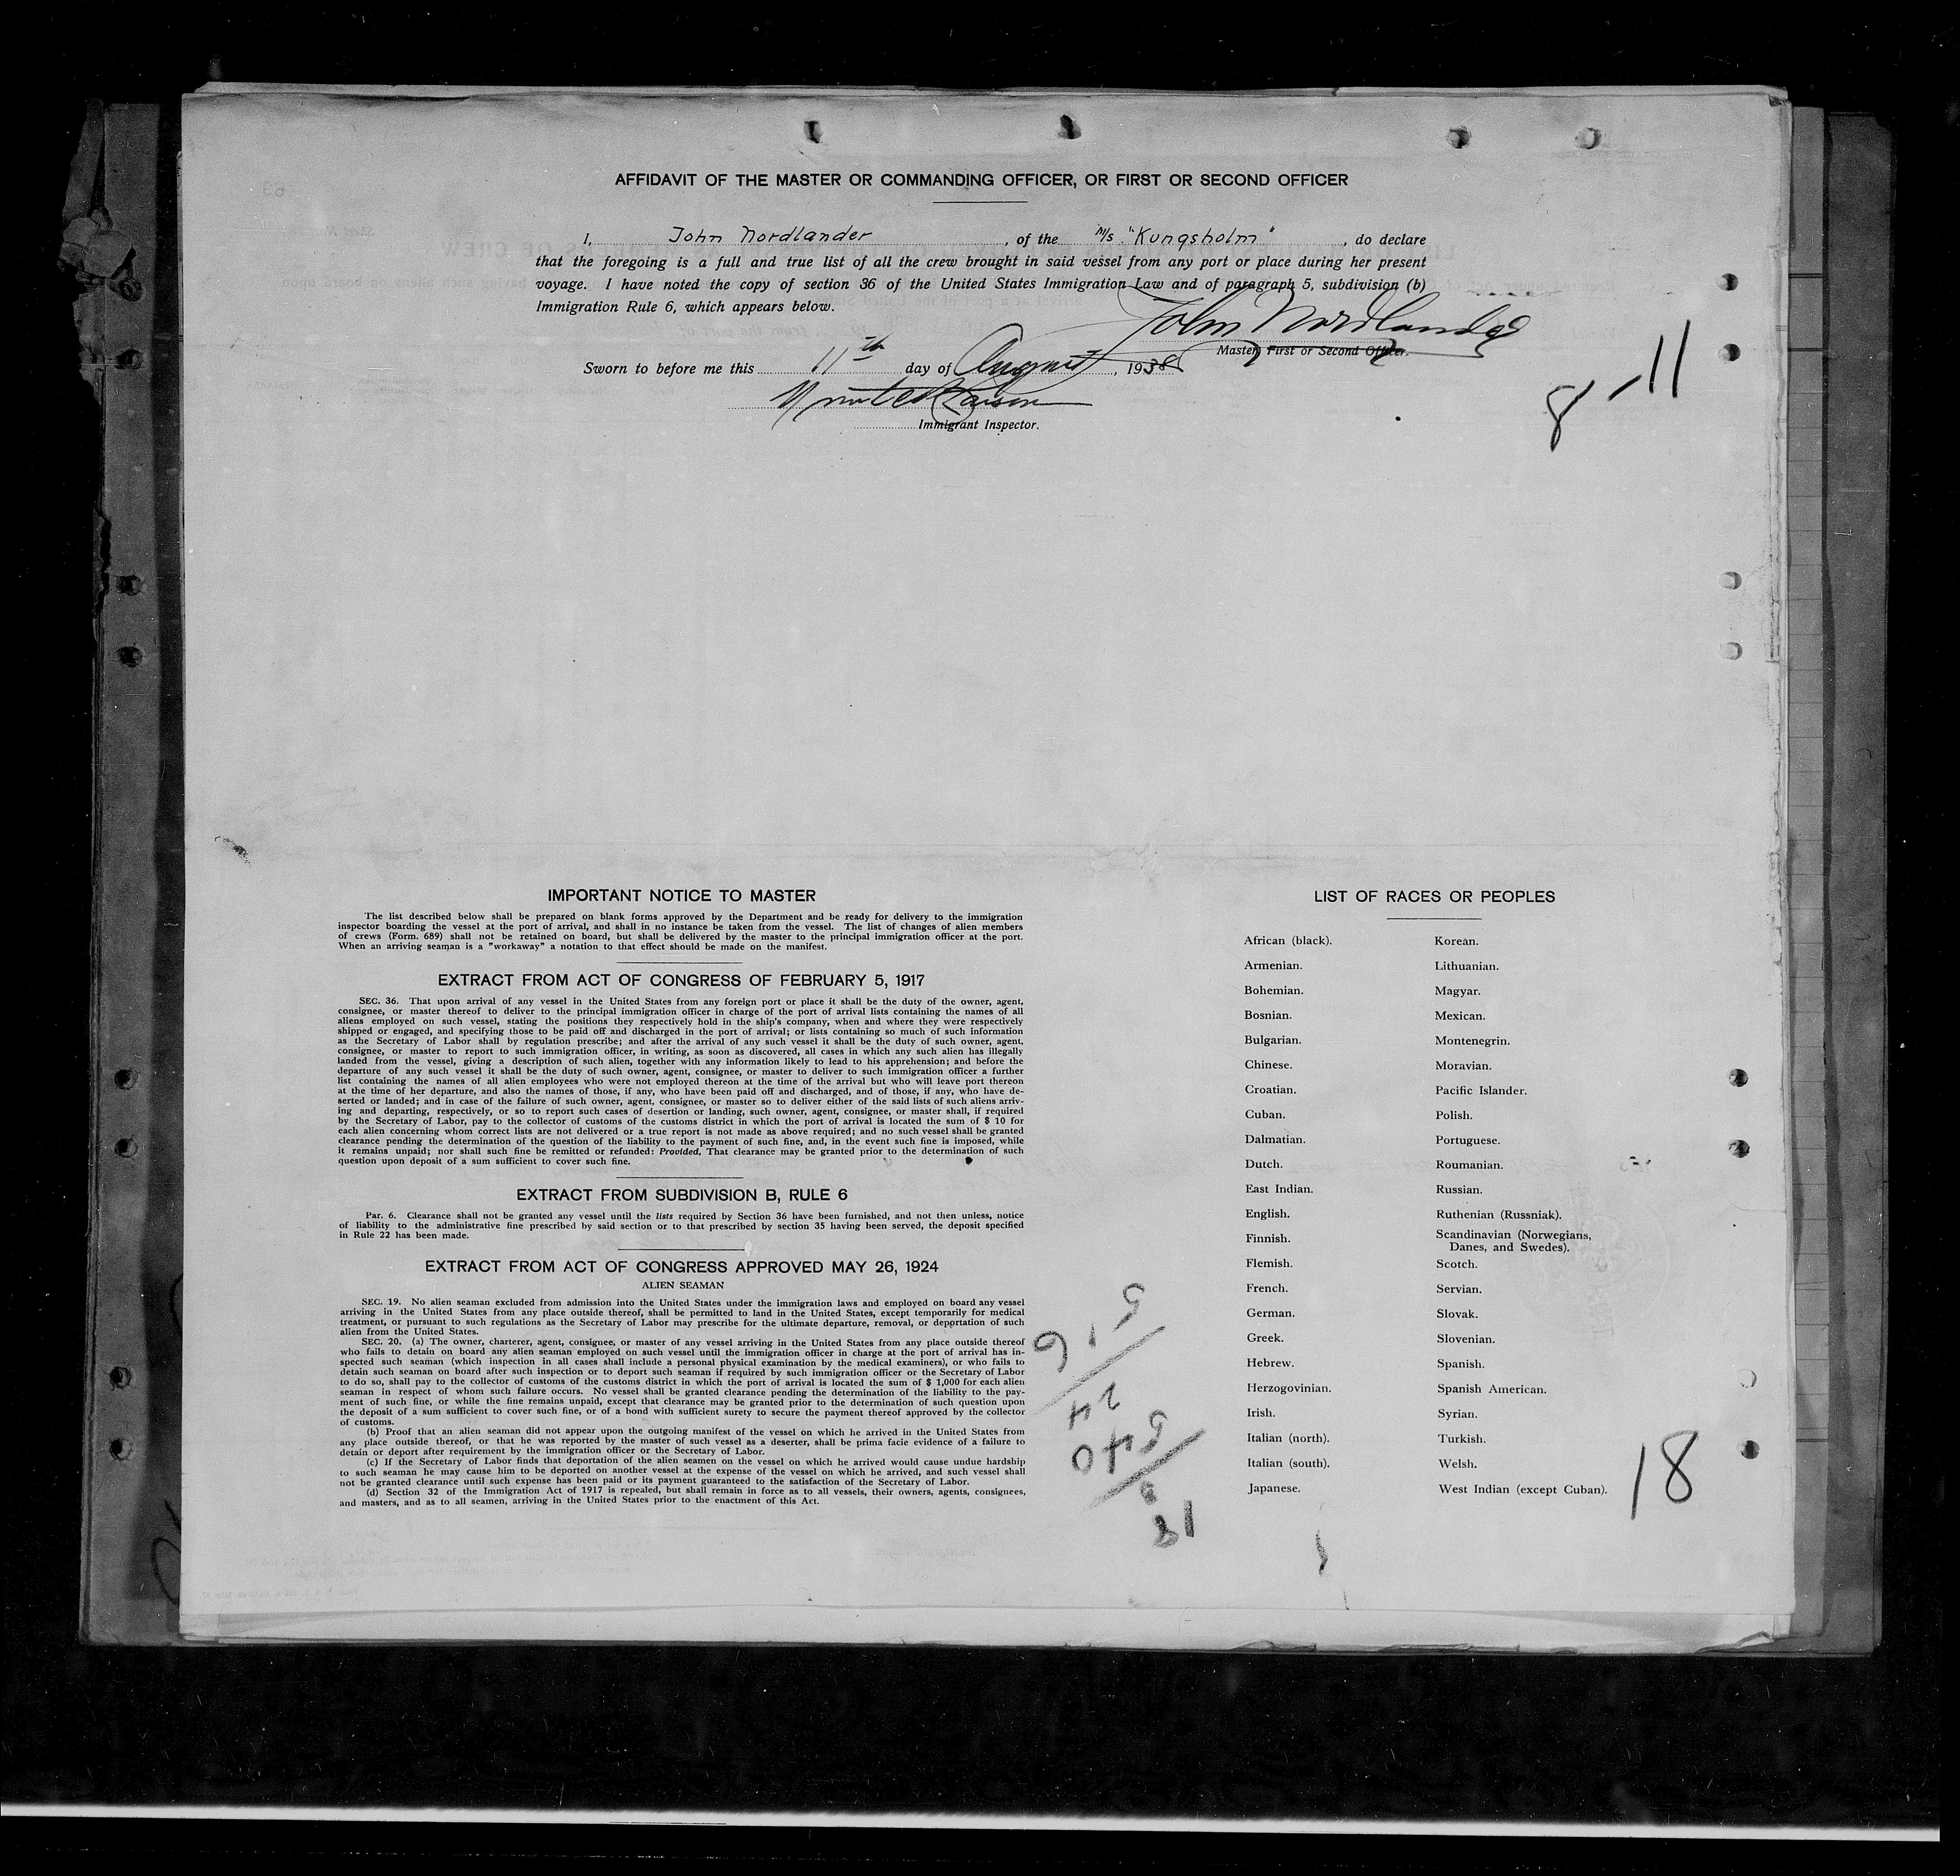 AFFIDAVIT OF THE MASTER OR COMMANDING OFFICER, OR FIRST OR SECOND OFFICER
I, John Nordlander, of the M/S "Kungsholm", do declare
that the foregoing is a full and true list of all the crew brought in said vessel from any port or place during her present
voyage. I have noted the copy of section 36 of the United States Immigration Law and of paragraph 5, subdivision (b)
Immigration Rule 6, which appears below.
John Nordlander
Master, First or Second Officer.
Sworn to before me this 11th day of August, 1938
Immigrant Inspector.
8-11
IMPORTANT NOTICE TO MASTER
The list described below shall be prepared on blank forms approved by the Department and be ready for delivery to the immigration
inspector boarding the vessel at the port of arrival, and shall in no instance be taken from the vessel. The list of changes of alien members
of crews (Form. 689) shall not be retained on board, but shall be delivered by the master to the principal immigration officer at the port.
When an arriving seaman is a "workaway" a notation to that effect should be made on the manifest.
EXTRACT FROM ACT OF CONGRESS OF FEBRUARY 5, 1917
SEC. 36. That upon arrival of any vessel in the United States from any foreign port or place it shall be the duty of the owner, agent,
consignee, or master thereof to deliver to the principal immigration officer in charge of the port of arrival lists containing the names of all
aliens employed on such vessel, stating the positions they respectively hold in the ship's company, when and where they were respectively
shipped or engaged, and specifying those to be paid off and discharged in the port of arrival; or lists containing so much of such information
as the Secretary of Labor shall by regulation prescribe; and after the arrival of any such vessel it shall be the duty of such owner, agent,
consignee, or master to report to such immigration officer, in writing, as soon as discovered, all cases in which any such alien has illegally
landed from the vessel, giving a description of such alien, together with any information likely to lead to his apprehension; and before the
departure of any such vessel it shall be the duty of such owner, agent, consignee, or master to deliver to such immigration officer a further
list containing the names of all alien employees who were not employed thereon at the time of the arrival but who will leave port thereon
at the time of her departure, and also the names of those, if any, who have been paid off and discharged, and of those, if any, who have de-
serted or landed; and in case of the failure of such owner, agent, consignee, or master so to deliver either of the said lists of such aliens arriv-
ing and departing, respectively, or so to report such cases of desertion or landing, such owner, agent, consignee, or master shall, if required
by the Secretary of Labor, pay to the collector of customs of the customs district in which the port of arrival is located the sum of $ 10 for
each alien concerning whom correct lists are not delivered or a true report is not made as above required; and no such vessel shall be granted
clearance pending the determination of the question of the liability to the payment of such fine, and, in the event such fine is imposed, while
it remains unpaid; nor shall such fine be remitted or refunded: Provided, That clearance may be granted prior to the determination of such
question upon deposit of a sum sufficient to cover such fine.
EXTRACT FROM SUBDIVISION B, RULE 6
Par. 6. Clearance shall not be granted any vessel until the lists required by Section 36 have been furnished, and not then unless, notice
of liability to the administrative fine prescribed by said section or to that prescribed by section 35 having been served, the deposit specified
in Rule 22 has been made.
EXTRACT FROM ACT OF CONGRESS APPROVED MAY 26, 1924
ALIEN SEAMAN
SEC. 19. No alien seaman excluded from admission into the United States under the immigration laws and employed on board any vessel
arriving in the United States from any place outside thereof, shall be permitted to land in the United States, except temporarily for medical
treatment, or pursuant to such regulations as the Secretary of Labor may prescribe for the ultimate departure, removal, or deportation of such
alien from the United States.
SEC. 20. (a) The owner, charterer, agent, consignee, or master of any vessel arriving in the United States from any place outside thereof
who fails to detain on board any alien seaman employed on such vessel until the immigration officer in charge at the port of arrival has in-
spected such seaman (which inspection in all cases shall include a personal physical examination by the medical examiners), or who fails to
detain such seaman on board after such inspection or to deport such seaman if required by such immigration officer or the Secretary of Labor
to do so, shall pay to the collector of customs of the customs district in which the port of arrival is located the sum of $ 1,000 for each alien
seaman in respect of whom such failure occurs. No vessel shall be granted clearance pending the determination of the liability to the pay-
ment of such fine, or while the fine remains unpaid, except that clearance may be granted prior to the determination of such question upon
the deposit of a sum sufficient to cover such fine, or of a bond with sufficient surety to secure the payment thereof approved by the collector
of customs.
(b) Proof that an alien seaman did not appear upon the outgoing manifest of the vessel on which he arrived in the United States from
any place outside thereof, or that he was reported by the master of such vessel as a deserter, shall be prima facie evidence of a failure to
detain or deport after requirement by the immigration officer or the Secretary of Labor.
(c) If the Secretary of Labor finds that deportation of the alien seamen on the vessel on which he arrived would cause undue hardship
to such seaman he may cause him to be deported on another vessel at the expense of the vessel on which he arrived, and such vessel shall
not be granted clearance until such expense has been paid or its payment guaranteed to the satisfaction of the Secretary of Labor.
(d) Section 32 of the Immigration Act of 1917 is repealed, but shall remain in force as to all vessels, their owners, agents, consignees,
and masters, and as to all seamen, arriving in the United States prior to the enactment of this Act.
LIST OF RACES OR PEOPLES
African (black).
Armenian.
Bohemian.
Bosnian.
Bulgarian.
Chinese.
Croatian.
Cuban.
Dalmatian.
Dutch.
East Indian.
English.
Finnish.
Flemish.
French.
German.
Greek.
Hebrew.
Herzogovinian.
Irish.
Italian (north).
Italian (south).
Japanese.
Korean.
Lithuanian.
Magyar.
Mexican.
Montenegrin.
Moravian.
Pacific Islander.
Polish.
Portuguese.
Roumanian.
Russian.
Ruthenian (Russniak).
Scandinavian (Norwegians,
Danes, and Swedes).
Scotch.
Servian.
Slovak.
Slovenian.
Spanish.
Spanish American.
Syrian.
Turkish.
Welsh.
West Indian (except Cuban).
18